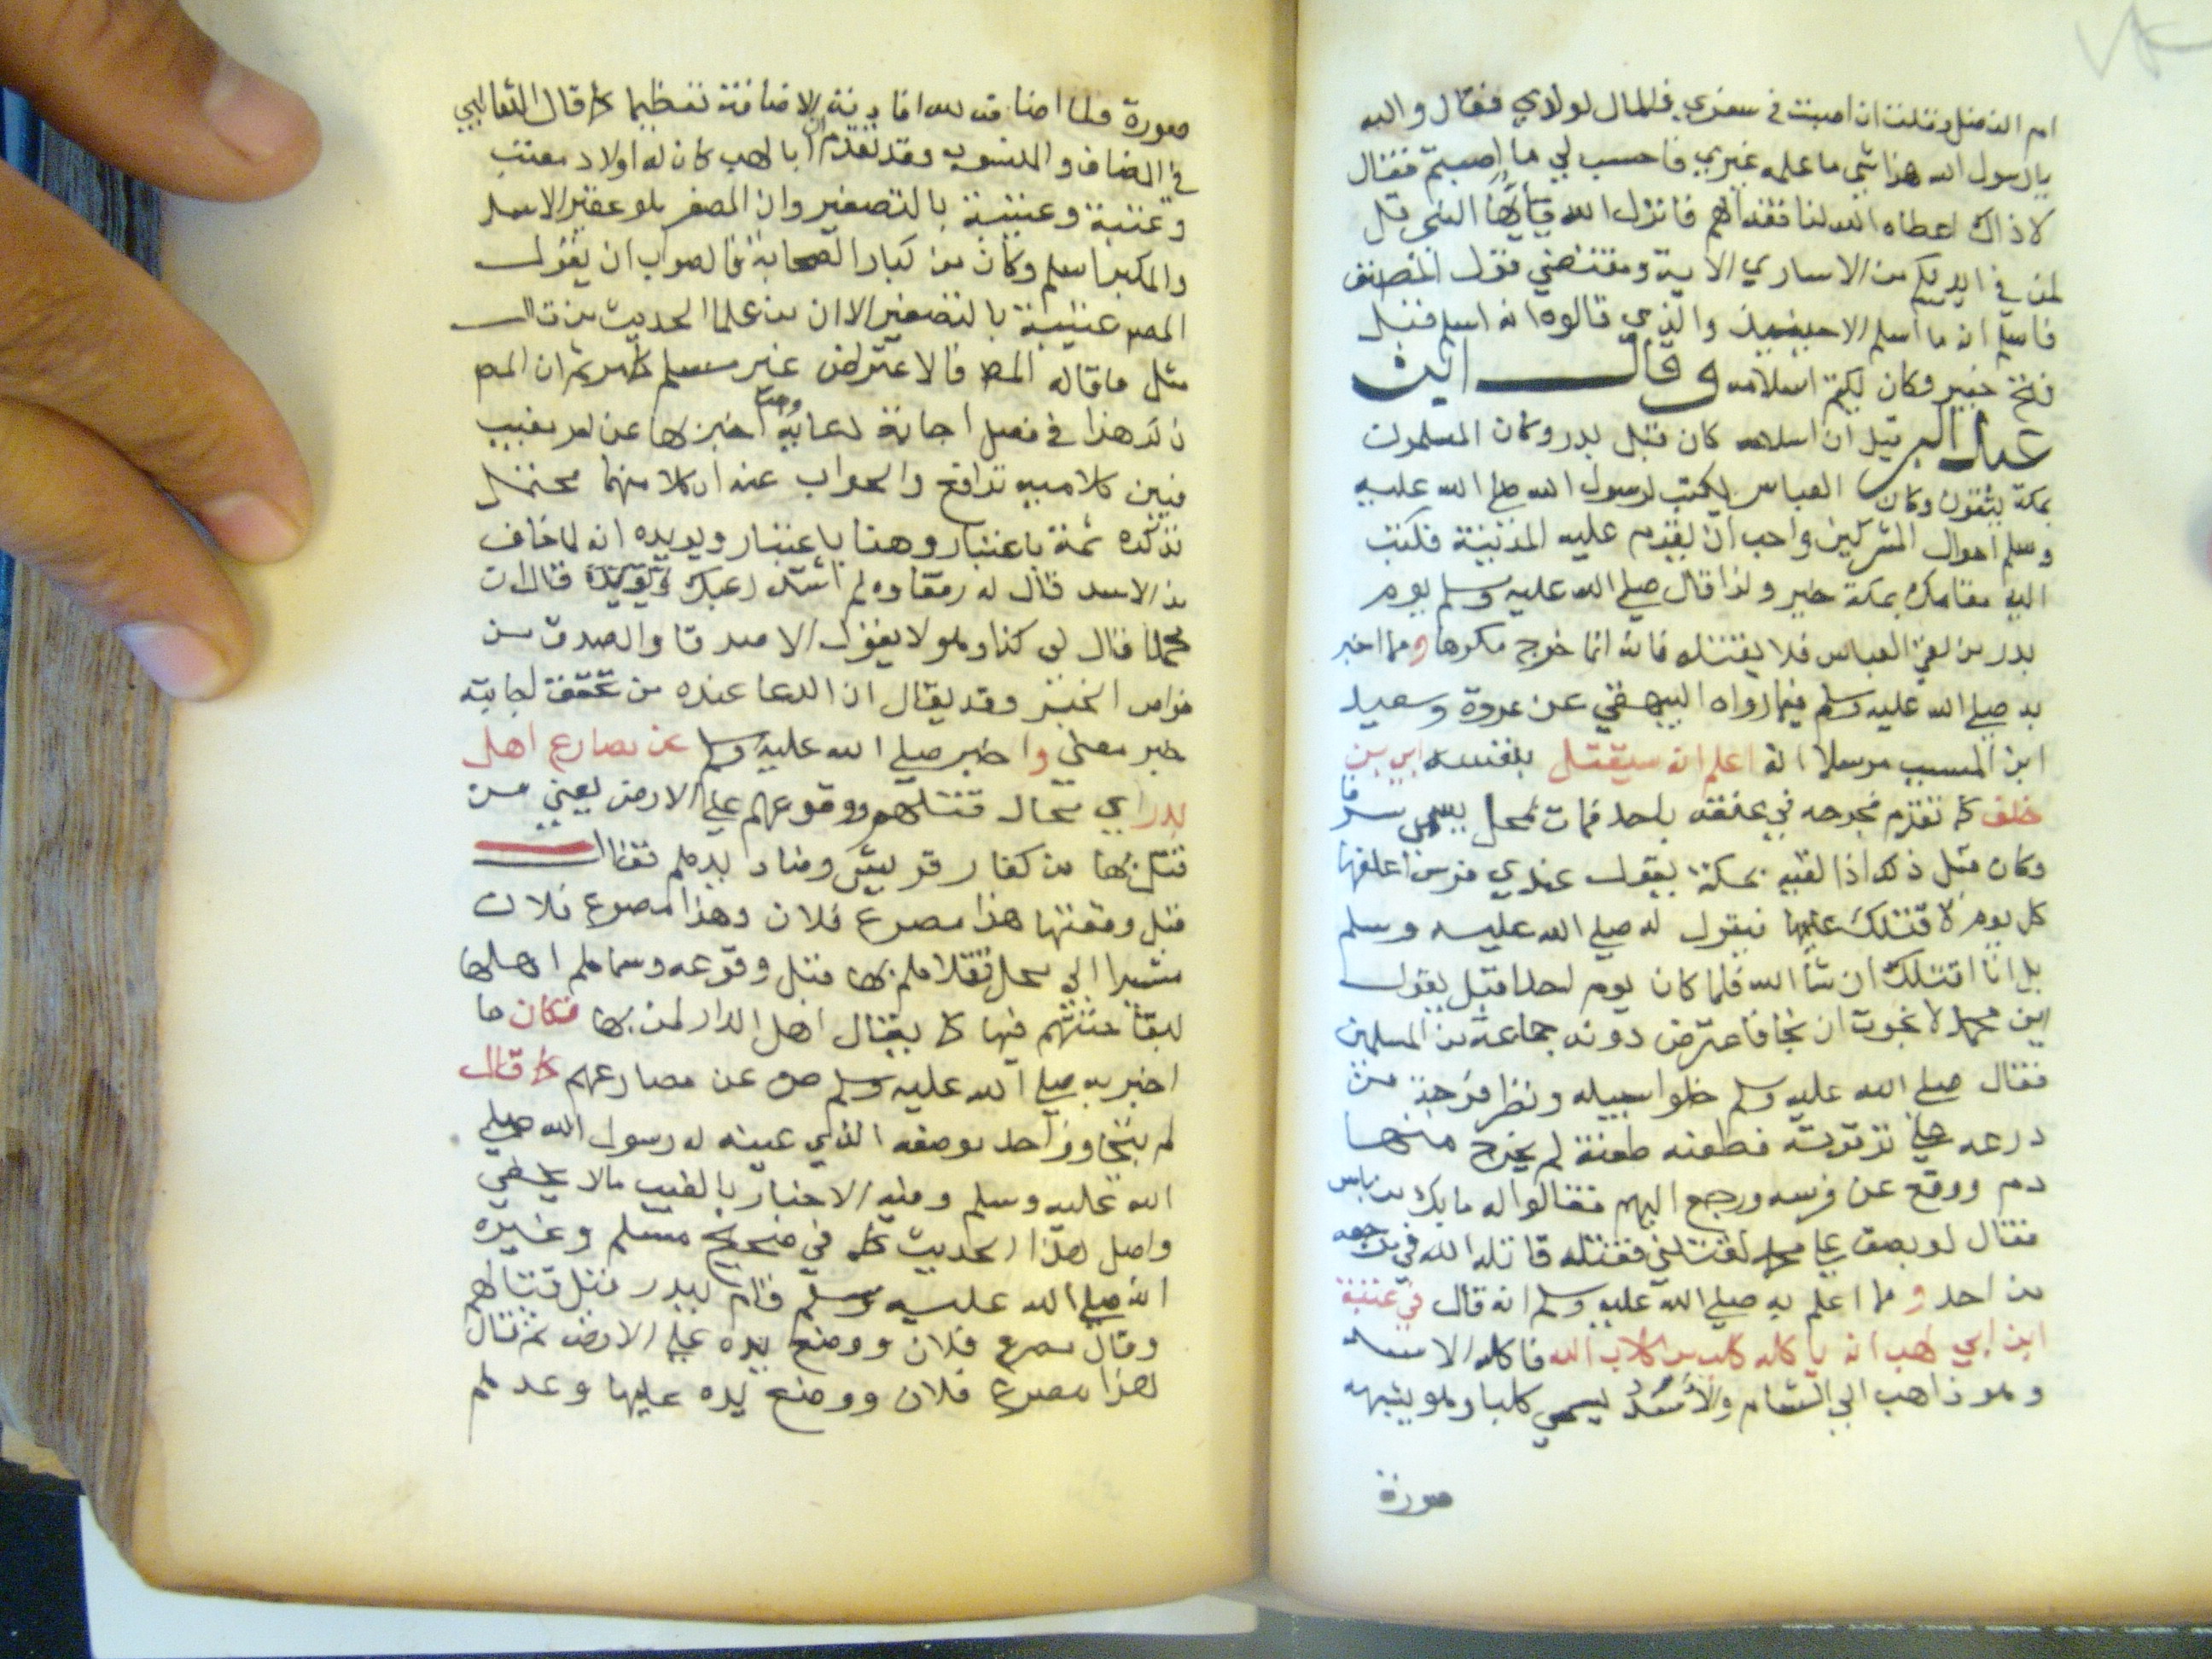 ام الفضل وقلت ان اصبت في سفري فالمال لولدي فقال والله
يا رسول الله هذا شي ما علمه غيري فاحسب لي ما اصبتم فقال
لا ذاك اعطاه الله لنا ففداهم فانزل الله يايها النبي قل
لمن في ايديكم من الاساري الاية ومقتضي قول المصنف
فاسلم انه ما اسلم الا حينئذ والذي قالوه انه اسلم قبل
فتح خيبر وكان يكتم اسلامه وقال ابن
عبد البر قيل ان اسلامه كان قبل بدر وكان المسلمون
بمكة يثقون وكان العباس يكتب لرسول الله صلي الله عليه
وسلم احوال المشركين واحب ان يقدم عليه المدينة فكتب
اليه مقامك بمكة خير ولذا قال صلي الله عليه وسلم يوم
بدر من لقي العباس فلا يقتله فانه انما خرج مكرها ومما اخبر
به صلي الله عليه وسلم فيما رواه البيهقي عن عروة وسعيد
ابن المسيب مرسلا انه اعلم انه سيقتل بنفسه ابي بن
خلف كما تقدم فجرحه في عنقه باحد فمات بمحل يسمي سرفا
وكان قبل ذلك اذا لقيه بمكة يقول عندي فرس اعلفها
كل يوم لاقتلك عليها فيقول له صلي الله عليه وسلم
بل انا اقتلك ان شا الله فلما كان يوم احد اقبل يقول
اين محمد لا نجوت ان نجا فاعترض دونه جماعة من المسلمين
فقال صلي الله عليه وسلم خلوا سبيله ونظر فرجة من
درعه علي ترقوته فطعنه طعنة لم يخرج منها
دم ووقع عن فرسه ورجع اليهم فقالوا له ما بك من باس
فقال لو بصق علي محمد لقتلني فقتله قاتله الله في مرجعه
من احد ومما اعلم به صلي الله عليه وسلم انه قال في عتبة
ابن ابي لهب انه ياكله كلب من كلاب الله فاكله الاسد
وهو ذاهب الي الشام والاسد يسمي كلبا وهو يشبهه
صورة
صورة ولما اضافه لله افادته الاضافة تعظيما كما قال الثعالبي
في المضاف والمنسوب وقد تقدم ان ابا لهب كان له اولاد معتب
وعتبة وعتيبة بالتصغير وان المصغر هو عقير الاسد
والمكبر اسلم وكان من كبار الصحابة فالصواب ان يقول
المص عتيبة بالتصغير الا ان من علما الحديث من قال
مثل ما قاله المص فالاعتراض غير مسلم كما مر ثم ان المص
ذكر هذا في فصل اجابة دعائه وهنا اخبر بها عن امر مغيب
فبين كلاميه تدافع والجواب عنه ان كلا منهما محتمل
فذكره ثمة باعتبار وهنا باعتبار ويويده انه لما خاف
من الاسد قال له رفقاوه لم اشتد رعبك قال ان
محمدا قال لي كذا وهو لا يقول الا صدقا والصدق من
خواص الخبر وقد يقال ان الدعا عنده من تحقق اجابته
خبر معني واخبر صلي الله عليه وسلم عن مصارع اهل
بدر اي محال قتلهم ووقوعهم علي الارض يعني من
قتل بها من كفار قريش وصناديدهم فقال
قبل وقعتها هذا مصرع فلان وهذا مصرع فلان
مشيرا الي محل قتلاهم بها قبل وقوعه وسماهم اهلها
لبقا جثثهم فيها كما يقال اهل الدار لمن بها فكان ما
اخبر به صلي الله عليه وسلم من عن مصارعهم كما قال
لم يتجاوز احد موضعه الذي عينه له رسول الله صلي
الله عليه وسلم وفيه الاخبار بالغيب مالا يخفي
واصل هذا الحديث كله في صحيح مسلم وغيره
انه صلي الله عليه وسلم قام ببدر قبل قتالهم
وقال مصرع فلان ووضع يده علي الارض ثم قال
هذا مصرع فلان ووضع يده عليها وعدهم